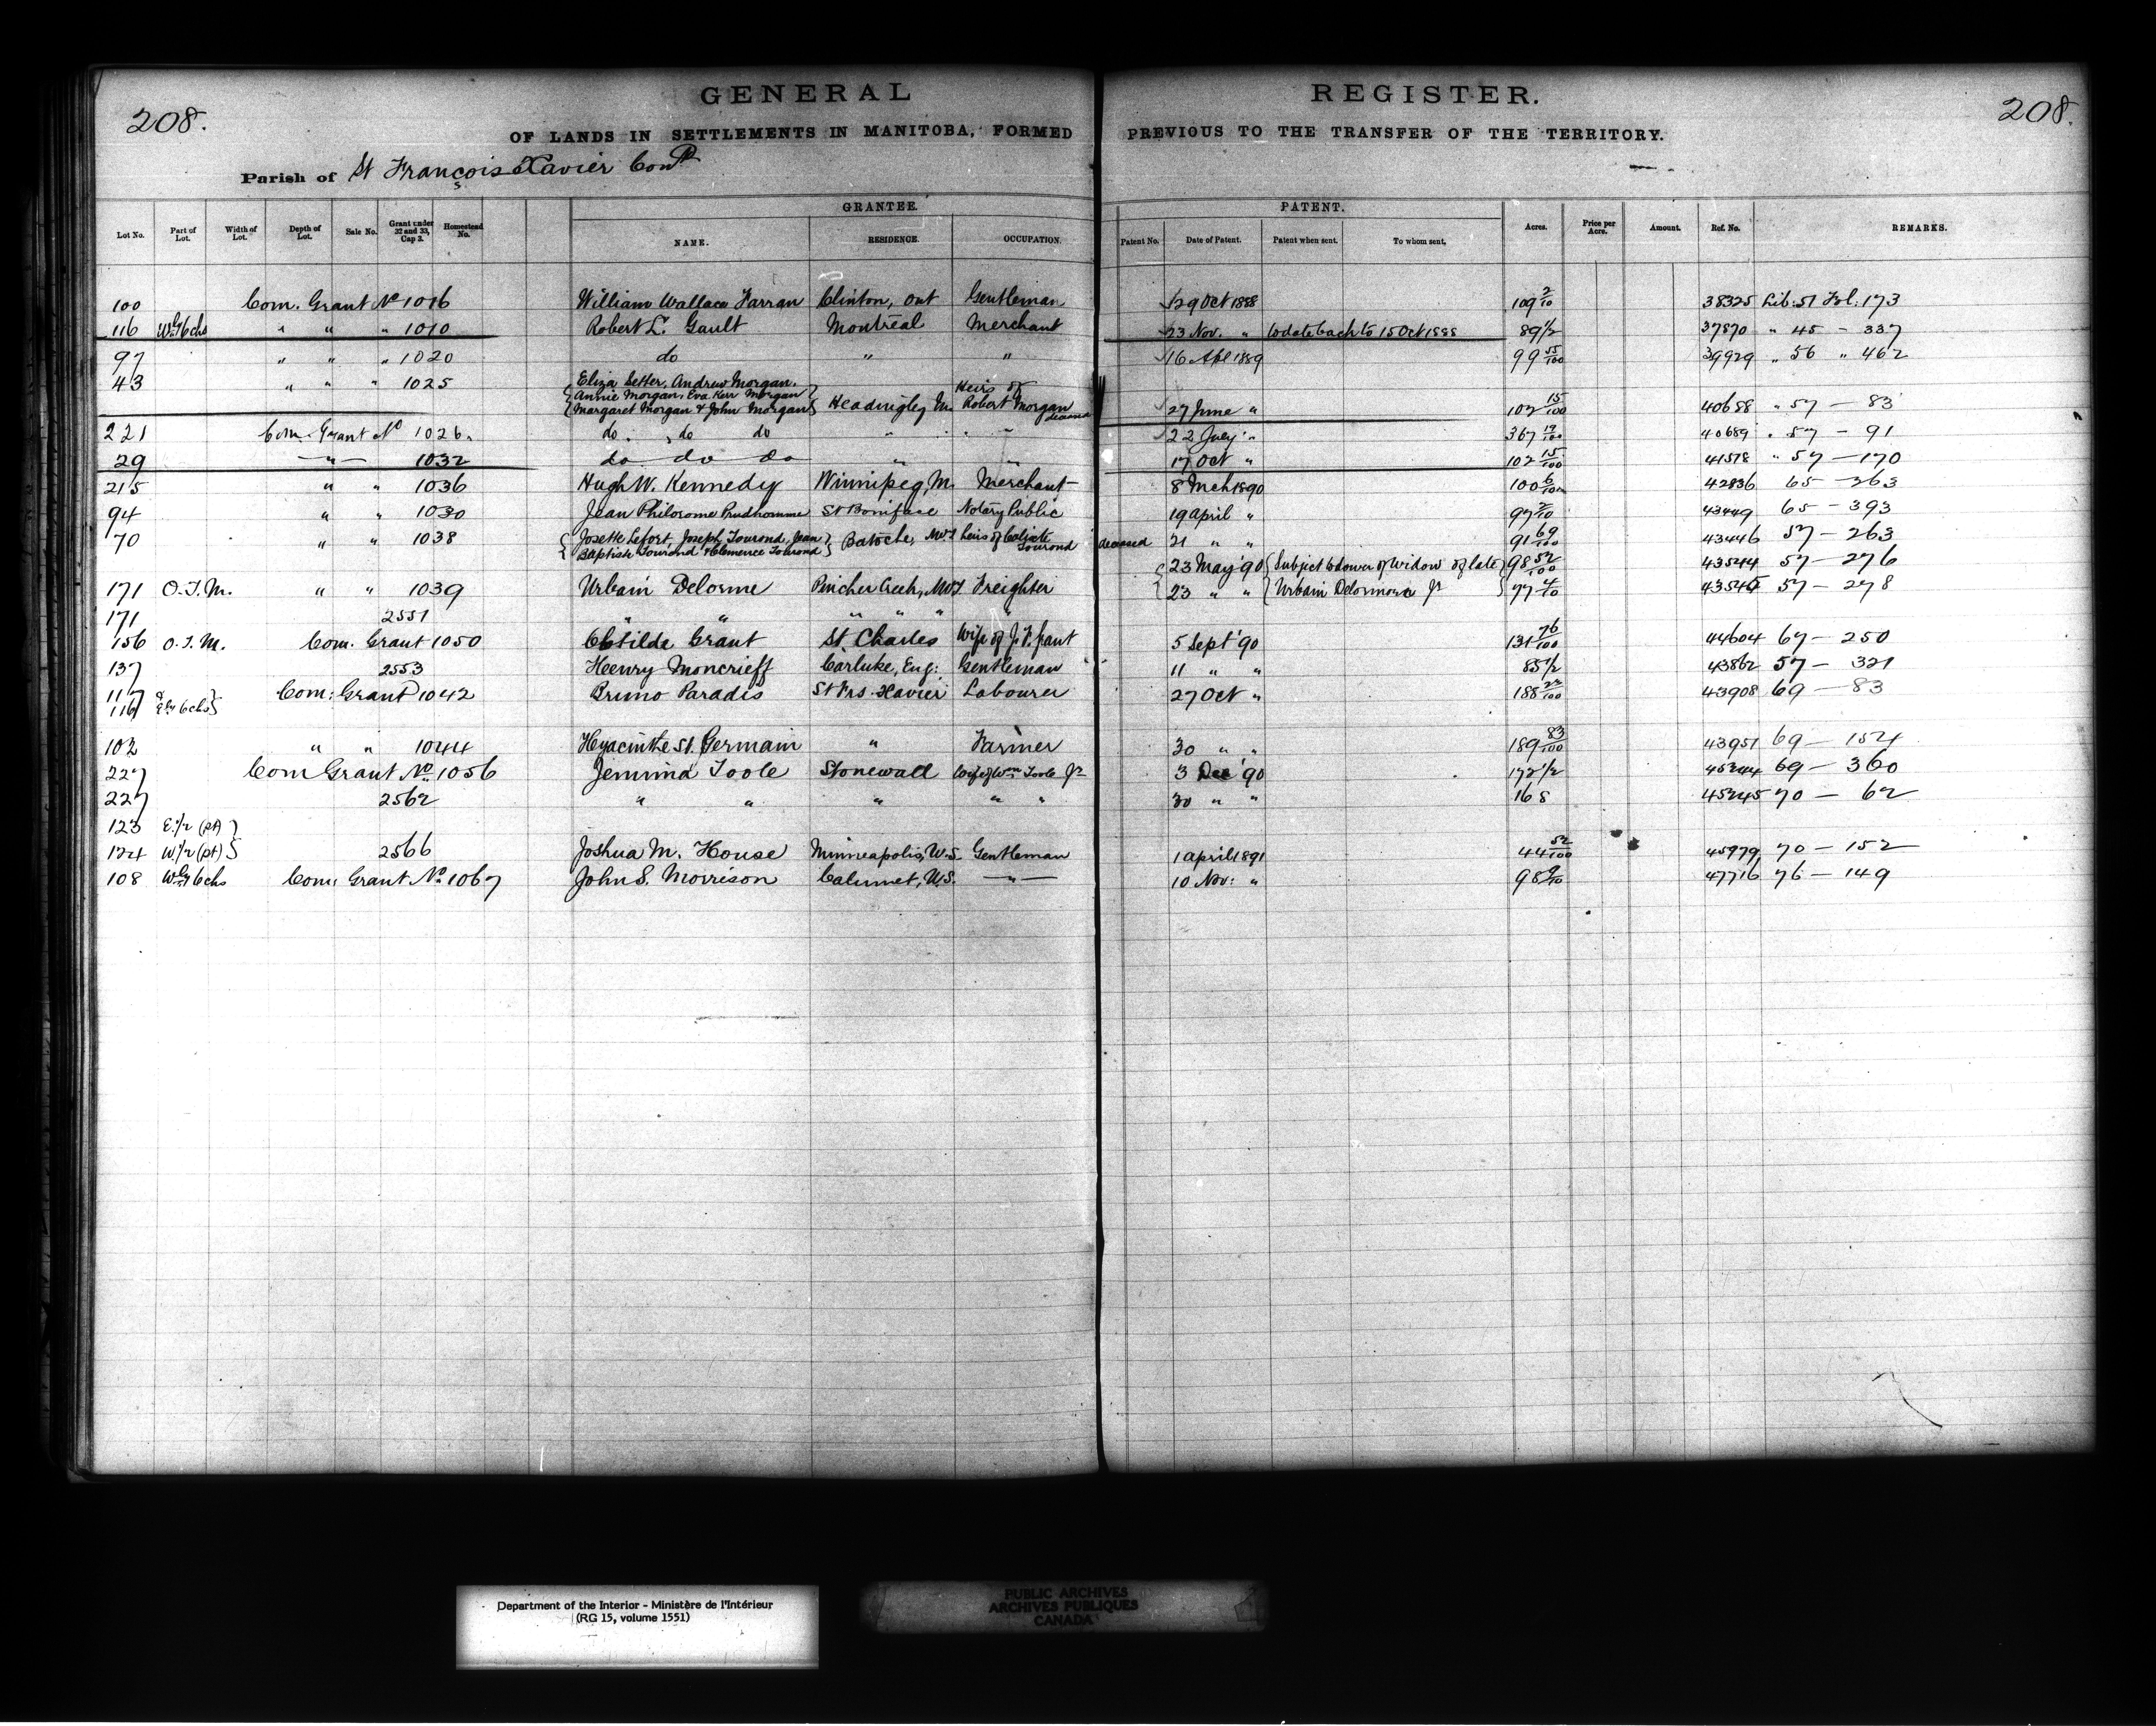 GENERAL REGISTER.
208. 208.
OF LANDS IN SETTLEMENTS IN MANITOBA, FORMED PREVIOUS TO THE TRANSFER OF THE TERRITORY.
Parish of St François Xavier Con^d
GRANTEE. PATENT.
Lot No. Part of Lot. Width of Lot. Depth of Lot. Sale No. Grant under 32 and 33, Cap 3. Homestead No. NAME. RESIDENCE. OCCUPATION. Patent No. Date of Patent. Patent when sent. To whom sent. Acres. Price per Acre. Amount. Ref. No. REMARKS.
100 Com. Grant No 1016 William Wallace Farran Clinton, Ont Gentleman 29 Oct 1888 109 2/10 38325 Lib: 51 Fol: 173
116 Wly 6 chs " " " 1010 Robert L. Gault Montreal Merchant 23 Nov. " to date back to 15 Oct 1888 89 1/2 37870 " 45 - 337
97 " " " 1020 do " " 16 Apl 1889 99 55/100 39929 " 56 " 462
43 " " " 1025 { Eliza Setter, Andrew Morgan, Annie Morgan, Eva Kerr Morgan Margaret Morgan & John Morgan } Headingley M. Heirs of Robert Morgan deceased 27 June " 102 15/100 40688 " 57 - 83
221 Com. Grant No 1026. do. do do " " " 22 July " 367 19/100 40689 " 57 - 91
29 —"— 1032 do do do " " 17 Oct " 102 15/100 41578 " 57 - 170
215 " " 1036 Hugh W. Kennedy Winnipeg, M. Merchant 8 Mch 1890 100 6/10 42836 65 - 263
94 " " 1030 Jean Philorome Prudhomme St Boniface Notary Public 19 April " 97 2/10 43449 65 - 393
70 " " 1038 { Josette Lefort, Joseph Tourond, Jean Baptiste Tourond & Clemence Tourond } Batoche, NWT heirs of Calixte Tourond deceased 21 " " 91 69/100 43446 57 - 263
{ 23 May '90 { Subject to dower of widow of late } 98 52/100 43544 57 - 276
171 O.T.M. " " 1039 Urbain Delorme Pincher Creek, NWT. Freighter 23 " " Urbain Delorme Jr 77 4/10 43545 57 - 278
171 2551 " " " " " "
156 O.T.M. Com. Grant 1050 Clotilde Grant St Charles Wife of J. F. Grant 5 Sept '90 131 76/100 44604 67 - 250
137 2553 Henry Moncrieff Carluke, Eng: Gentleman 11 " " 85 1/2 43862 57 - 321
117 & 116 Ely 6 chs } Com: Grant 1042 Bruno Paradis St Frs. Xavier Labourer 27 Oct " 188 22/100 43908 69 - 83
102 " " 1044 Hyacinthe St. Germain " Farmer 30 " " 189 83/100 43951 69 - 154
227 Com Grant No. 1056 Jemima Toole Stonewall Wife of Wm Toole Jr 3 Dec '90 172 1/2 45244 69 - 360
227 2562 " " " " " 30 " " 168 45245 70 - 62
123 E. 1/2 (pt) }
124 W. 1/2 (pt) } 2566 Joshua M. House Minneapolis, U.S. Gentleman 1 April 1891 44 52/100 45979 70 - 152
108 Wly 6 chs Com: Grant No. 1067 John S. Morrison Calumet, U.S. —"— 10 Nov: " 98 9/10 47716 76 - 149
Department of the Interior - Ministère de l'Intérieur
(RG 15, volume 1551)
PUBLIC ARCHIVES
ARCHIVES PUBLIQUES
CANADA